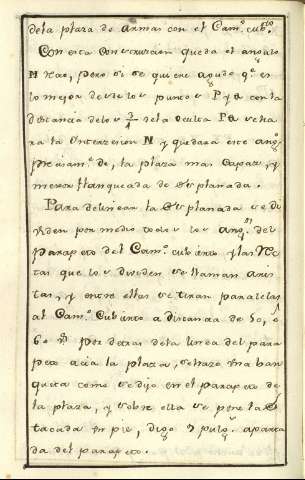 dela plaza de armas con el Cam.º cub.to
Con esta Construcion queda el angulo
N Recto, pero si se quiere agudo q.e es
lo mejor desde los puntos P y Q con la
distancia delos 3/4 dela oculta PQ se ha
ra la Interseccion N y quedara este ang.º
precisam.te de, la plaza mas Capaz, y
menos flanqueada de Esplanada.
Para delinear la Esplanada se di
viden por medio todos los ang.s del
Parapeto del Cam.º cubierto y las Rec
tas que los dividen se llaman aris
tas, y entre ellas se tiran paralelas
al Cam.º Cubierto a distancia de 50, o
60 por detras dela linea del para
peto acia la plaza, se hara Vna ban
queta como se dijo en el parapeto de
la plaza, y sobre ella se pone la Es
tacada en pie, digo 9 pulg.s aparta
da del parapeto.